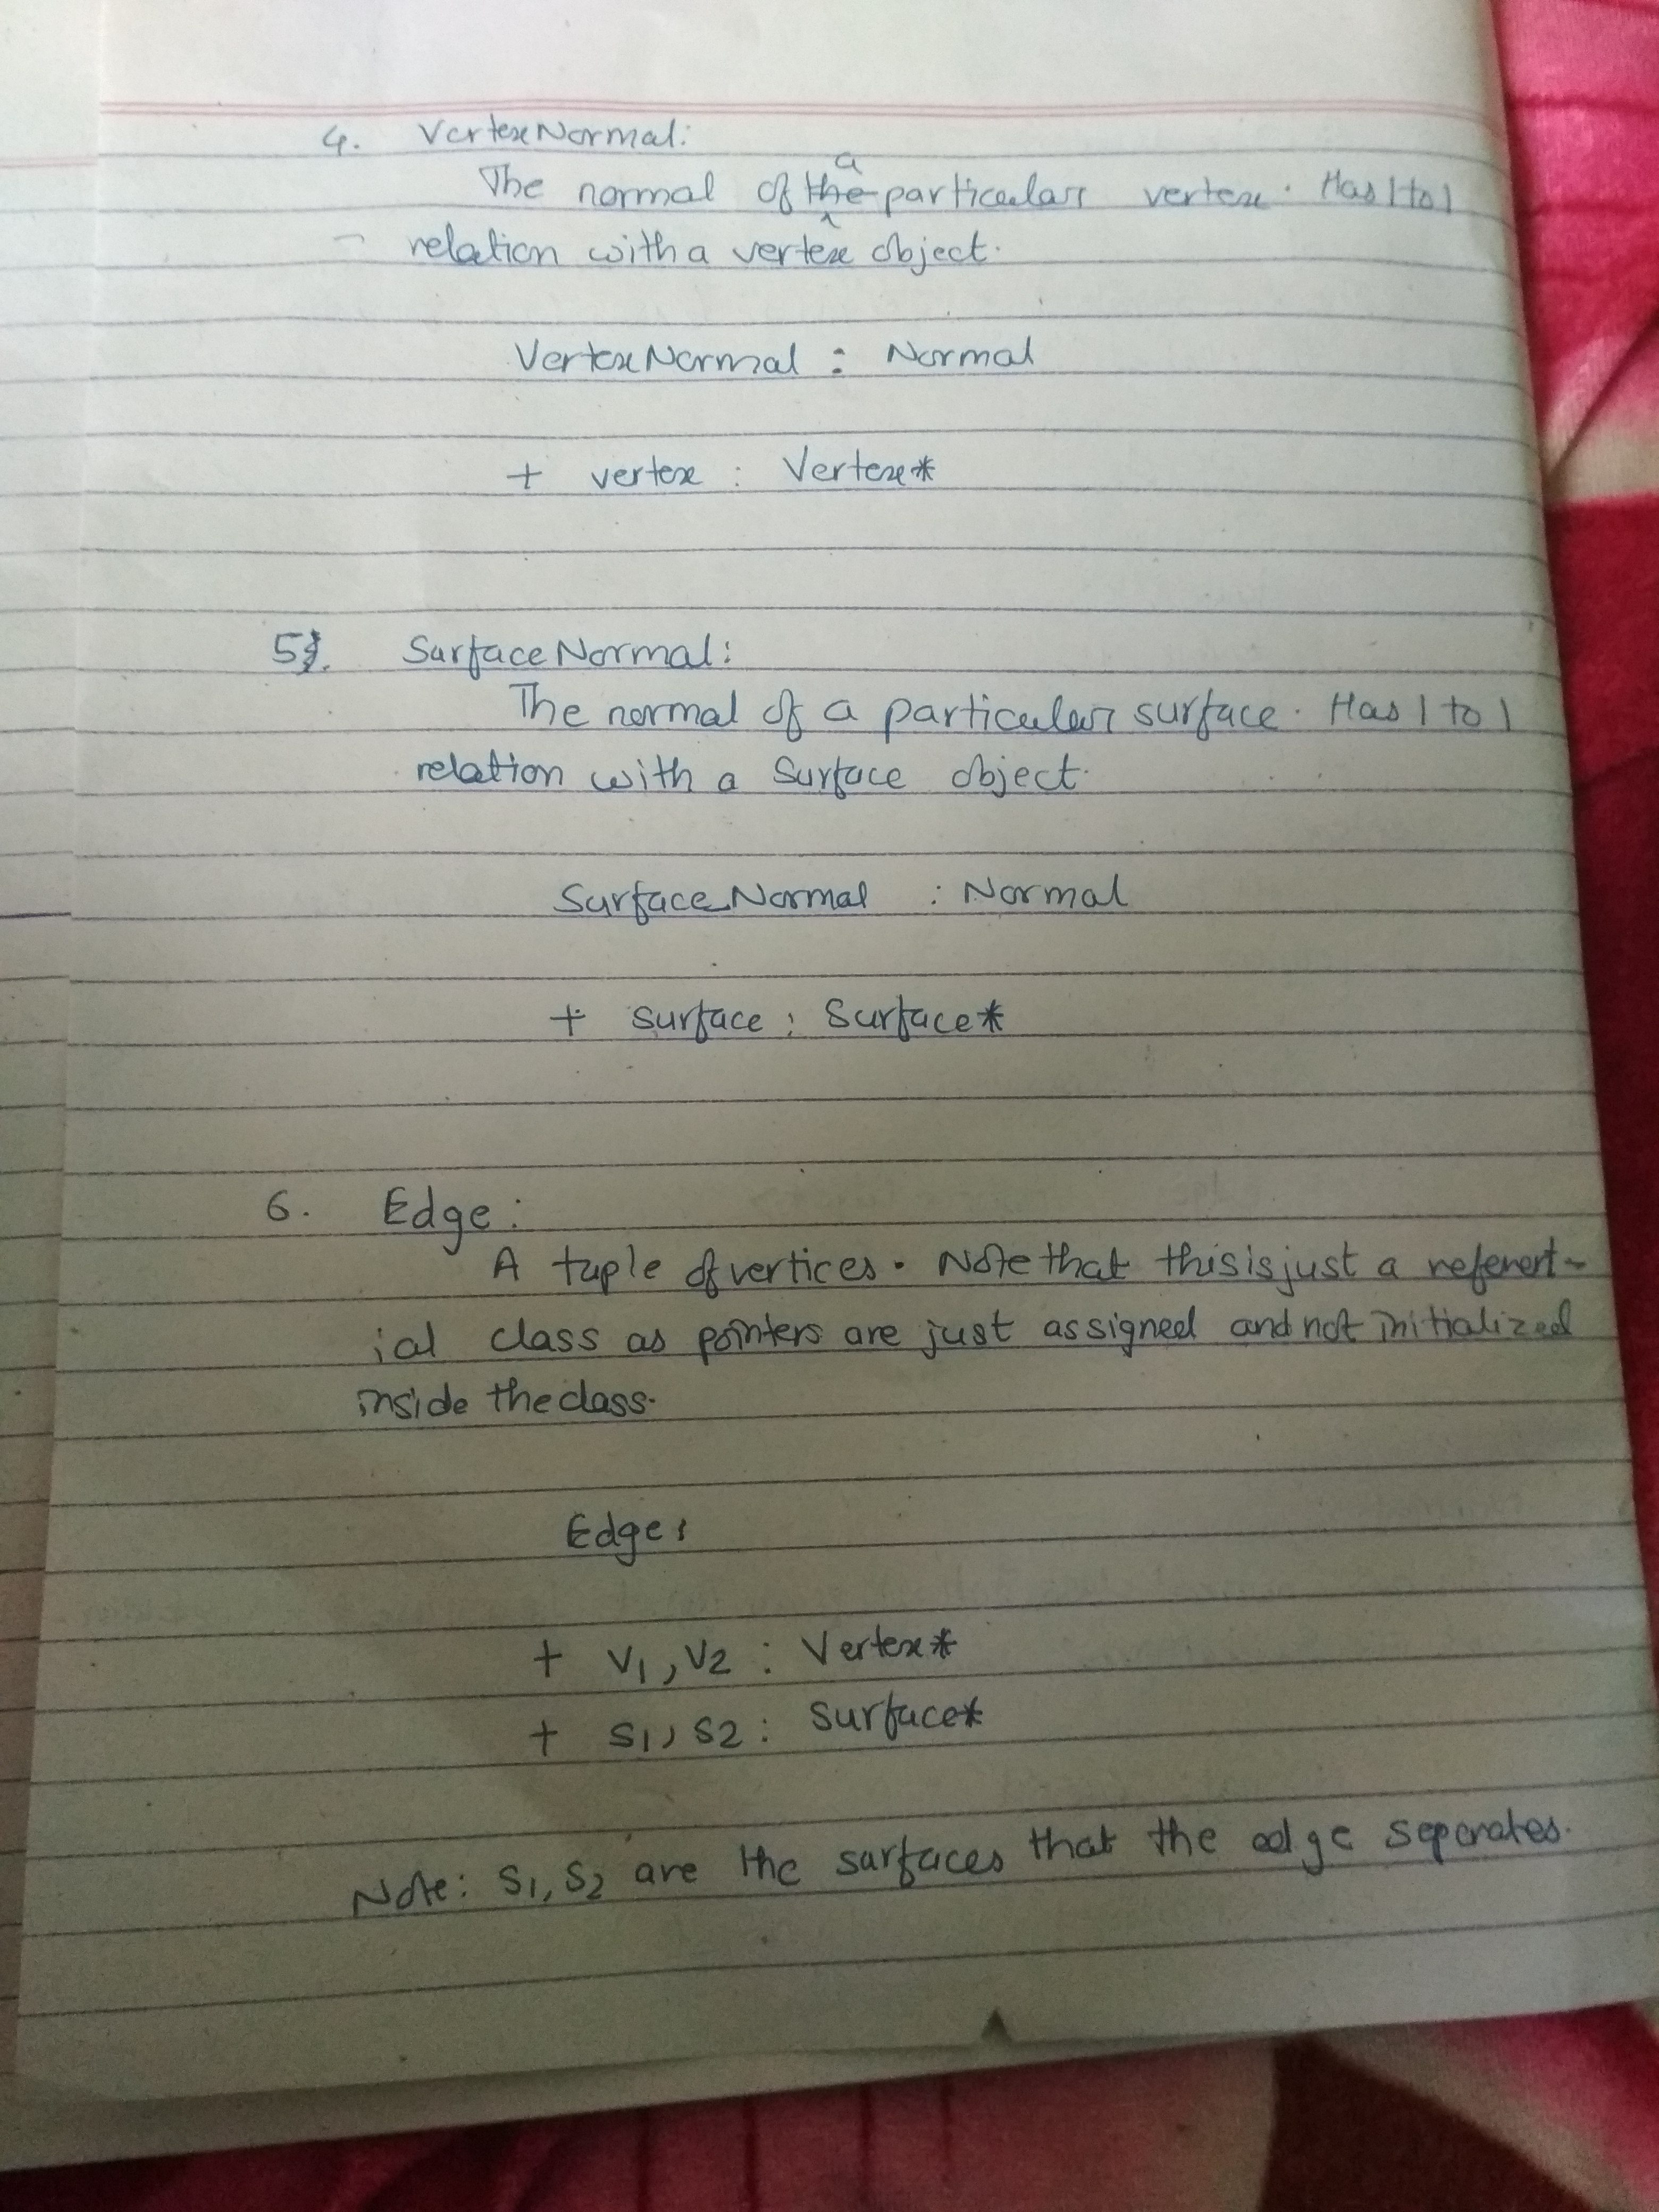 4. VertexNormal:
The normal of a particular vertex. Has 1 to 1
relation with a vertex object.
VertexNormal : Normal
+ vertex : Vertex*
5. SurfaceNormal:
The normal of a particular surface. Has 1 to 1
relation with a Surface object.
SurfaceNormal : Normal
+ surface : Surface*
6. Edge:
A tuple of vertices. Note that this is just a referent-
ial class as pointers are just assigned and not initialized
inside the class.
Edge:
+ V1, V2 : Vertex*
+ S1, S2 : Surface*
Note: S1, S2 are the surfaces that the edge seperates.